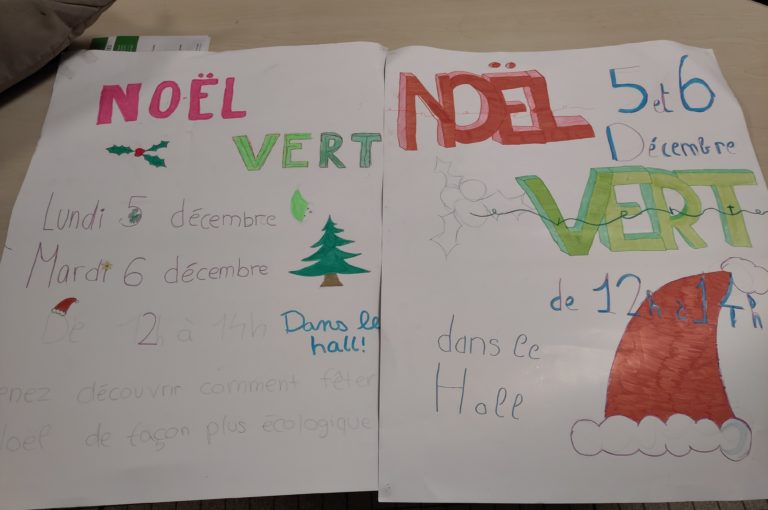 NOËL
VERT
Lundi 5 décembre
Mardi 6 décembre
De 12h à 14h
Dans le
hall!
enez découvrir comment fêter
Noël de façon plus écologique
NOËL
5 et 6
Décembre
VERT
de 12h à 14h
dans le
Hall